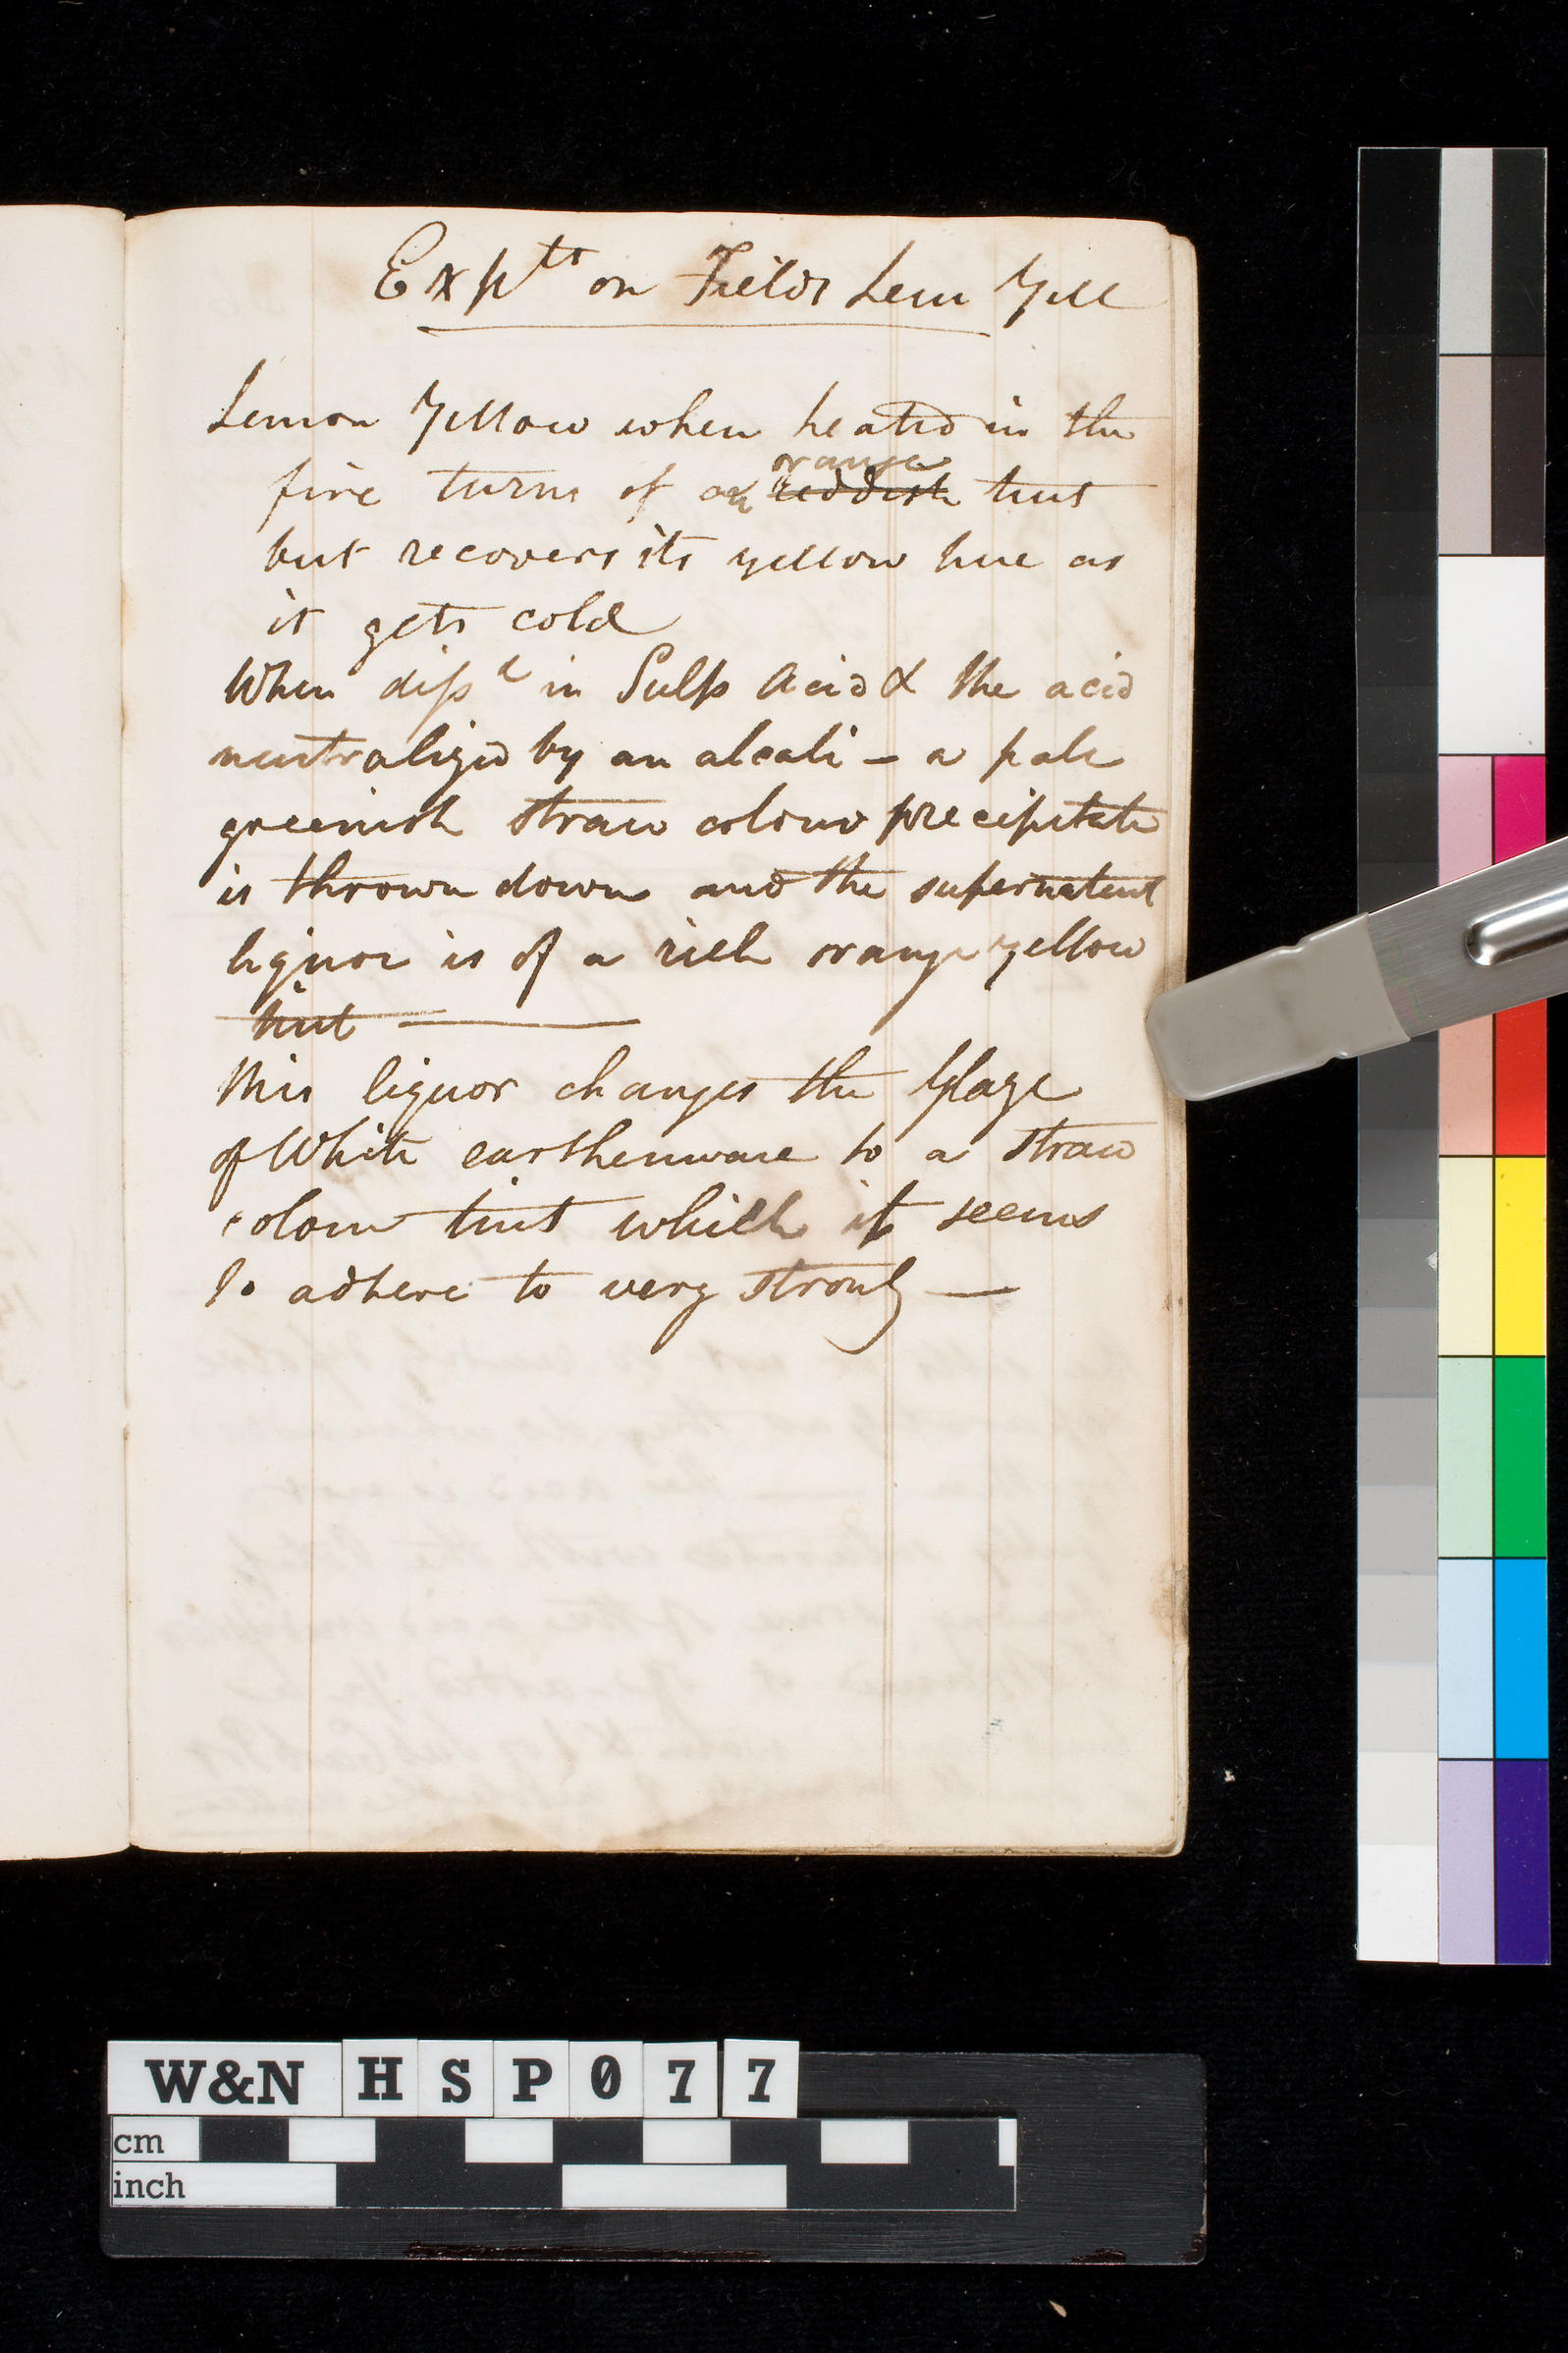 Exp^ts on Fields Lem Yell
Lemon Yellow when heated in the
orange
fire turns of an ~~reddish~~ tint
but recovers its yellow hue as
it gets cold
When diss^d in Sulp Acid & the acid
neutralized by an alcali – a pale
greenish straw colour precipitate
is thrown down and the supernatent
liquor is of a rich orange yellow
tint —
this liquor changes the Glaze
of White earthenware to a straw
colour tint which it seems
to adhere to very strongly —
W&N HSP077
cm
inch